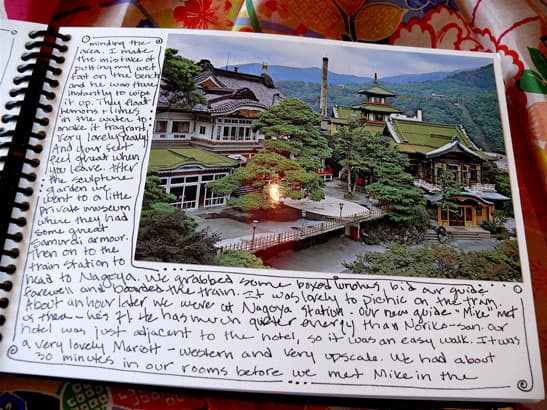 minding the
area. I made
the mistake of
putting my wet
foot on the bench
and he was there
instantly to wipe
it up. They float
lemons + limes
in the water to
make it fragrant.
Very lovely really
And your feet
feel great when
you leave. After
the sculpture
garden we
went to a little
private museum
where they had
some great
samurai armour.
Then on to the
train station to
head to Nagoya. We grabbed some boxed lunches, bid our guide
farewell and boarded the train. It was lovely to picnic on the train.
About an hour later we were at Nagoya station. Our new guide "Mike" met
us there - he's 71. He has much quieter energy than Noriko-san. Our
hotel was just adjacent to the hotel, so it was an easy walk. It was
a very lovely Mariott - western and very upscale. We had about
30 minutes in our rooms before we met Mike in the